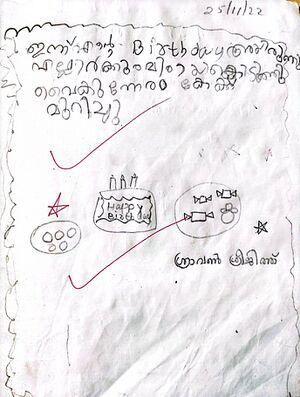 25/11/22
ഇന്ന് എന്റെ Birthday ആയിരുന്നു
എല്ലാവർക്കും മിഠായി കൊടുത്തു
വൈകുന്നേരം കേക്ക്
മുറിച്ചു
Happy
Birth day
ശ്രാവൺ ശ്രീജിത്ത്